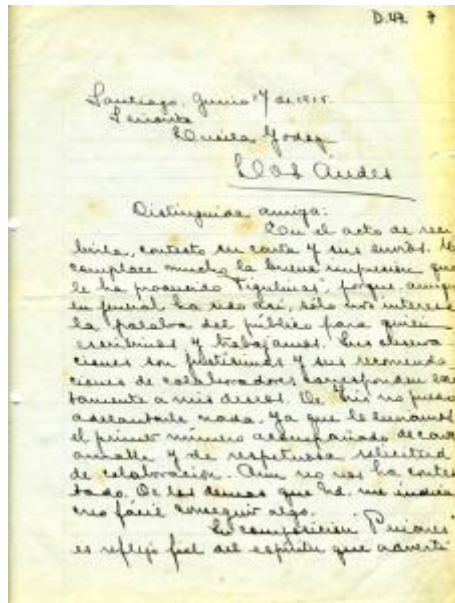 D.42 7
Santiago, Junio 17 de 1915.
Señorita
Lucila Godoy
Los Andes
Distinguida amiga:
En el acto de reci
birla, contesto su carta y sus envíos. Me
complace mucho la buena impresión que
le ha producido "Figulinas", porque, aunque
en general ha sido así, sólo nos interesa
la palabra del público para quién
escribimos y trabajamos. Sus observa
ciones son justísimas y sus recomenda
ciones de colaboradores corresponden exac
tamente a mis deseos. De no puedo
adelantarle nada. Ya que le enviamos
el primer número acompañado de carta
amable y de respetuosa solicitud
de colaboración. Aun no nos ha contes
tado. De los demas que Ud. me indica
creo fácil conseguir algo.
Su composición
es reflejo fiel del espíritu que advertí